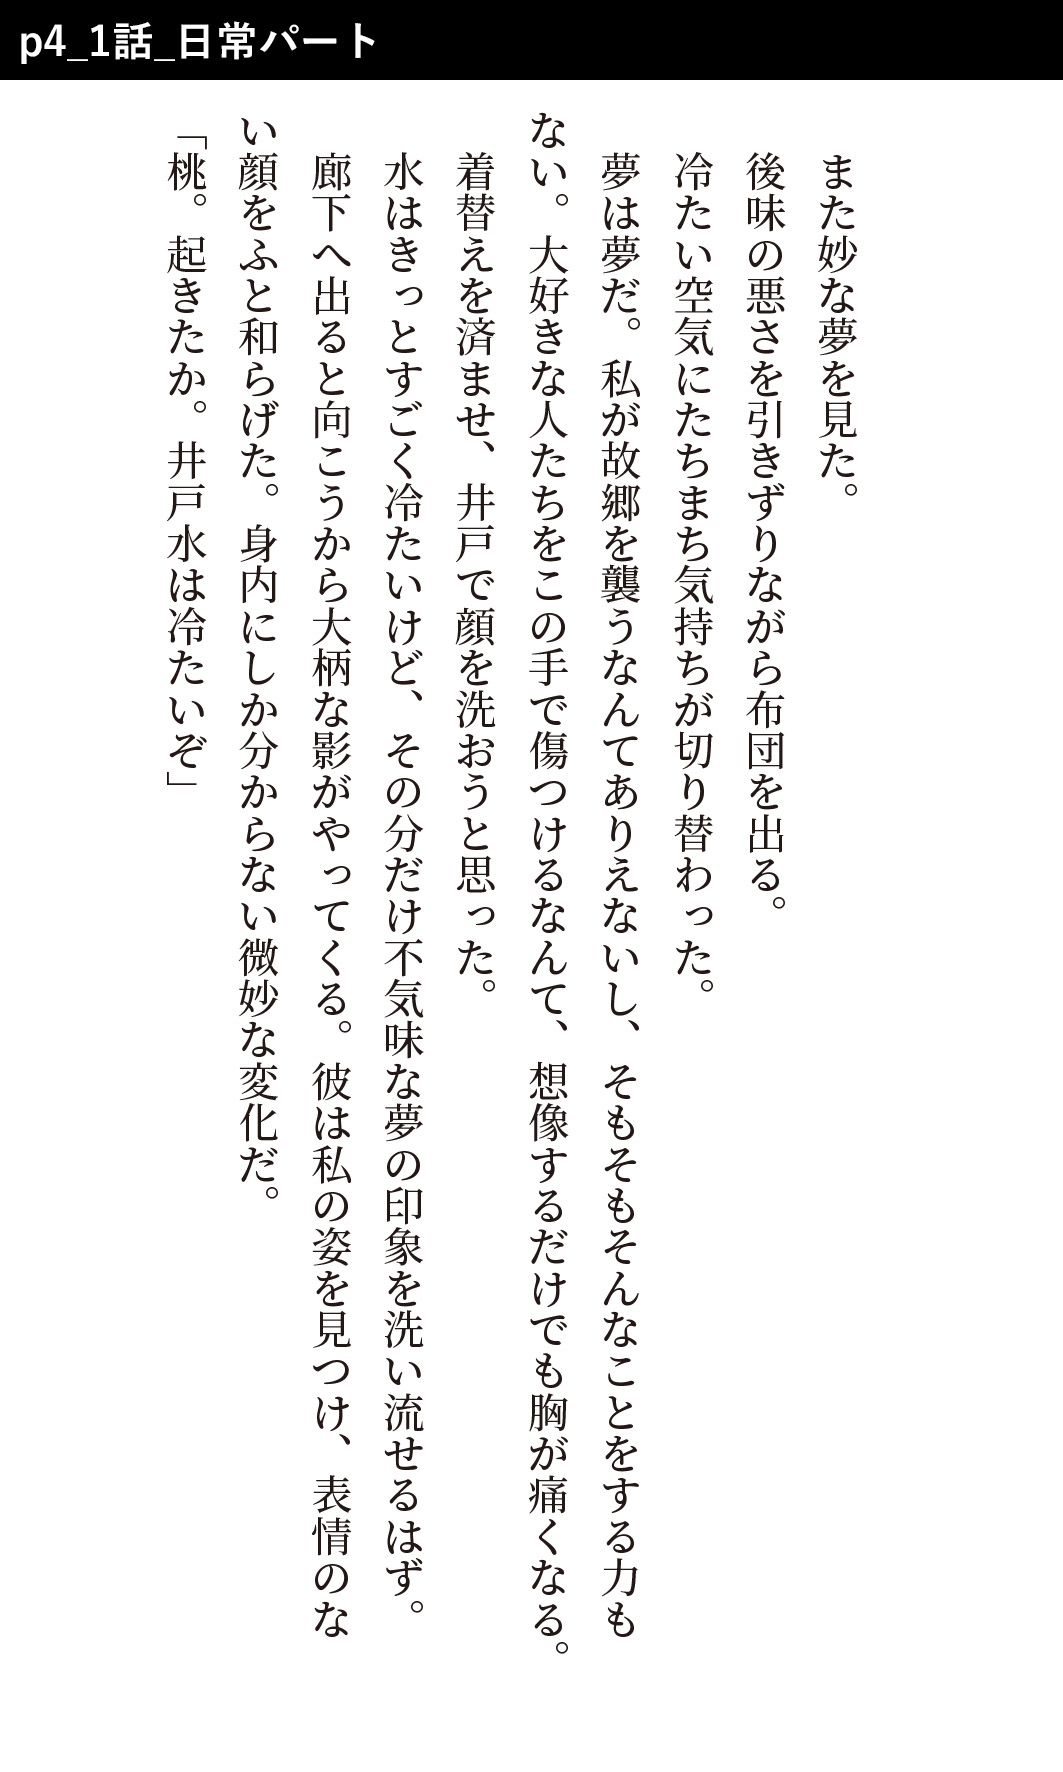 p4_1話_日常パート
　また妙な夢を見た。
　後味の悪さを引きずりながら布団を出る。
　冷たい空気にたちまち気持ちが切り替わった。
　夢は夢だ。私が故郷を襲うなんてありえないし、そもそもそんなことをする力も
ない。大好きな人たちをこの手で傷つけるなんて、想像するだけでも胸が痛くなる。
　着替えを済ませ、井戸で顔を洗おうと思った。
　水はきっとすごく冷たいけど、その分だけ不気味な夢の印象を洗い流せるはず。
　廊下へ出ると向こうから大柄な影がやってくる。彼は私の姿を見つけ、表情のな
い顔をふと和らげた。身内にしか分からない微妙な変化だ。
「桃。起きたか。井戸水は冷たいぞ」